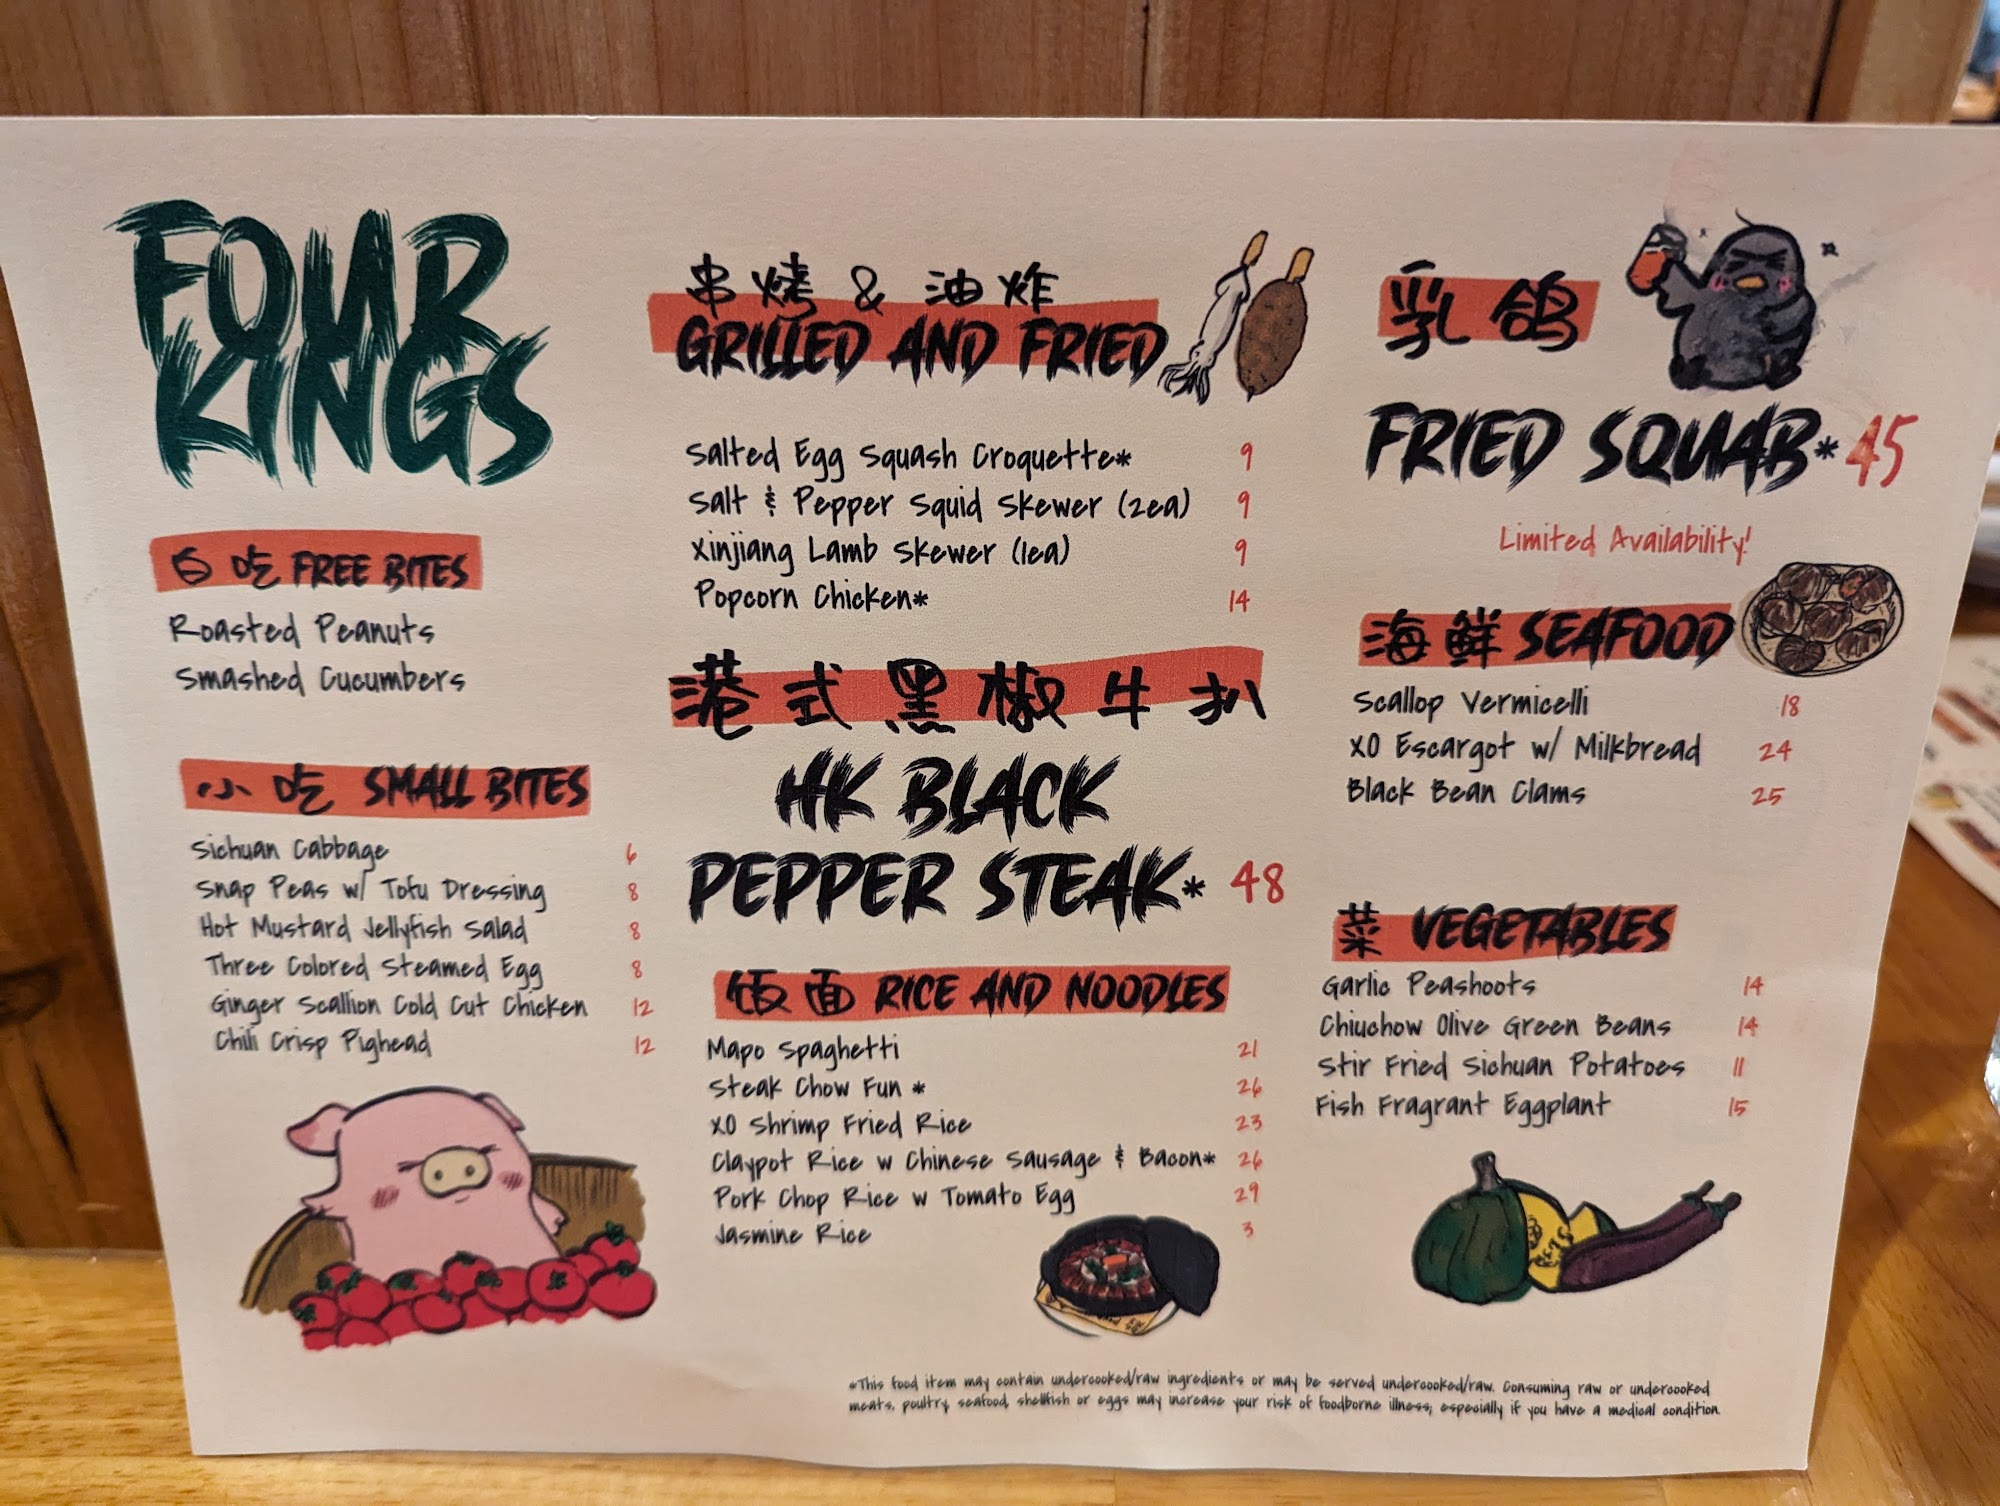 FOUR
KINGS
白吃 FREE BITES
Roasted Peanuts
Smashed Cucumbers
小吃 SMALL BITES
Sichuan Cabbage 6
Snap Peas w/ Tofu Dressing 8
Hot Mustard Jellyfish Salad 8
Three Colored Steamed Egg 8
Ginger Scallion Cold Cut Chicken 12
Chili Crisp Pighead 12
串烤 & 油炸
GRILLED AND FRIED
Salted Egg Squash Croquette* 9
Salt & Pepper Squid Skewer (2ea) 9
Xinjiang Lamb Skewer (1ea) 9
Popcorn Chicken* 14
港式黑椒牛扒
HK BLACK
PEPPER STEAK* 48
饭面 RICE AND NOODLES
Mapo Spaghetti 21
Steak Chow Fun * 26
XO Shrimp Fried Rice 23
Claypot Rice w Chinese Sausage & Bacon* 26
Pork Chop Rice w Tomato Egg 29
Jasmine Rice 3
乳鸽
FRIED SQUAB* 45
Limited Availability!
海鲜 SEAFOOD
Scallop Vermicelli 18
XO Escargot w/ Milkbread 24
Black Bean Clams 25
菜 VEGETABLES
Garlic Peashoots 14
Chiuchow Olive Green Beans 14
Stir Fried Sichuan Potatoes 11
Fish Fragrant Eggplant 15
*This food item may contain undercooked/raw ingredients or may be served undercooked/raw. Consuming raw or undercooked
meats, poultry, seafood, shellfish or eggs may increase your risk of foodborne illness, especially if you have a medical condition.